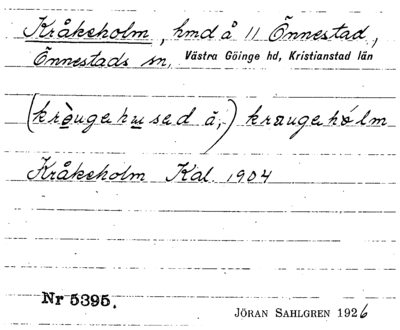 Kråkeholm, hmd å 11 Önnestad,
Önnestads sn, Västra Göinge hd, Kristianstad län
(kròugehused å,) kraugehólm
Kråkeholm Kal. 1904
Nr 5395.
JÖRAN SAHLGREN 1926